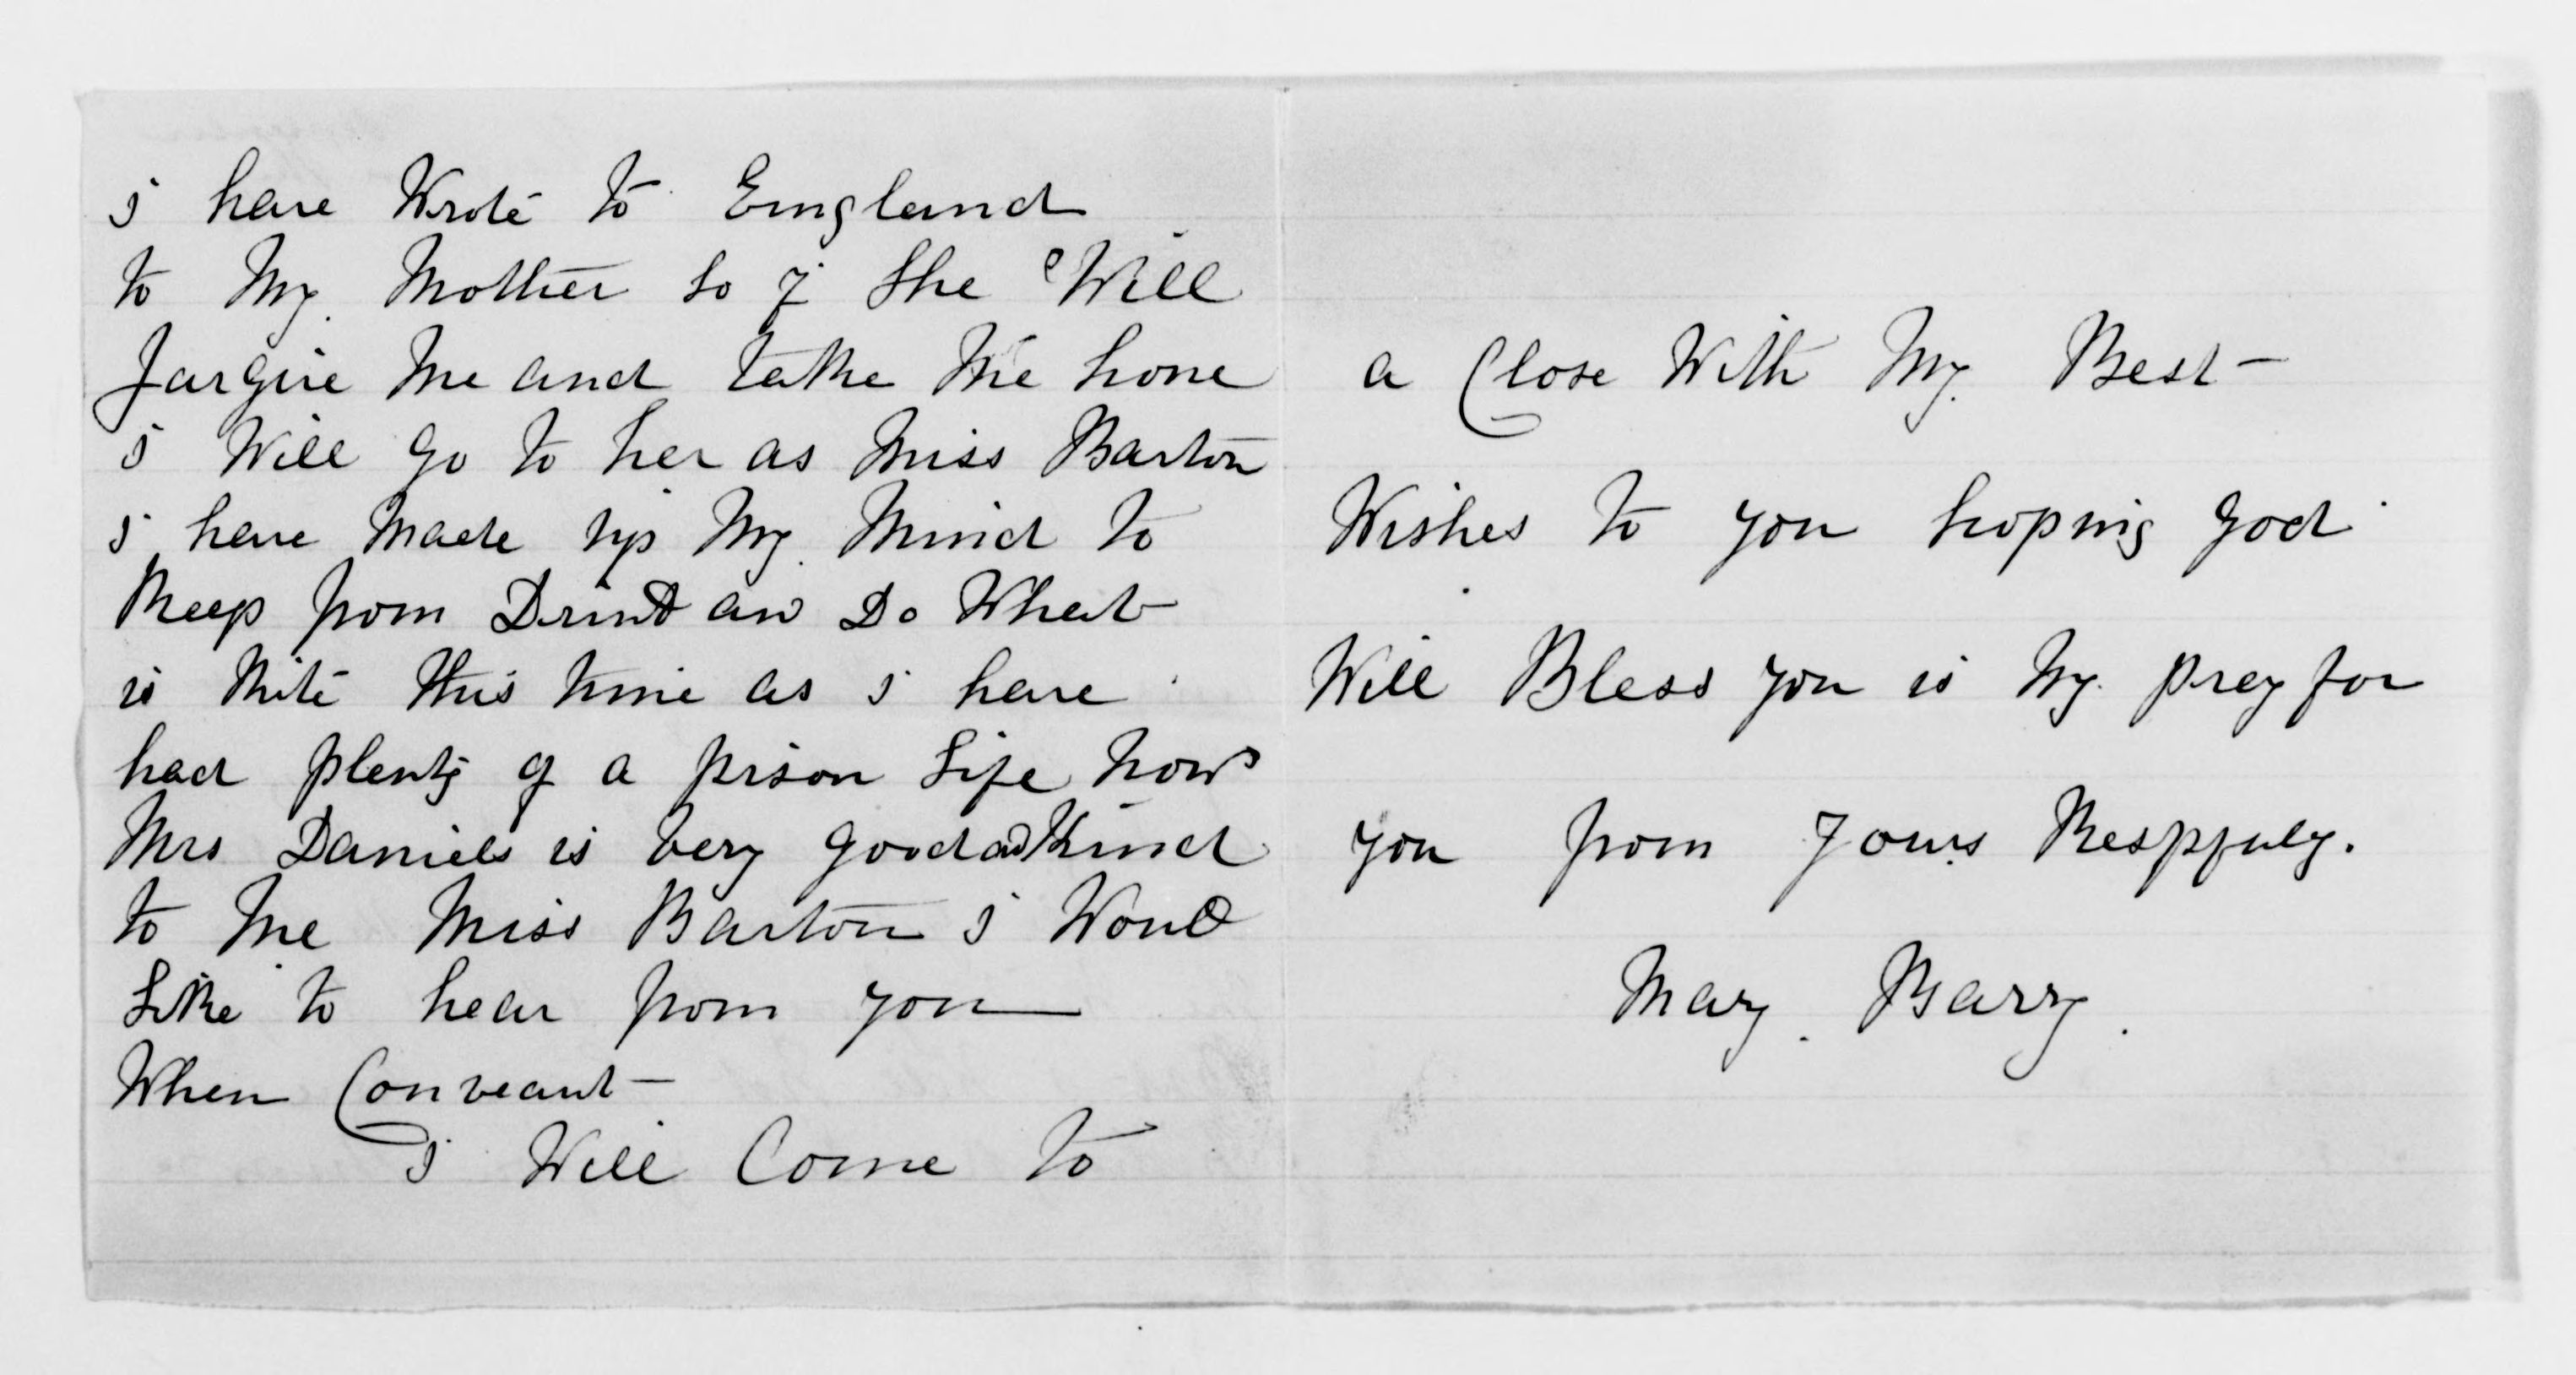 i have Wrote to Eingland
to My Mother so if She Will
fargive Me and take Me home
i Will go to her as Miss Barton
i have Made up My Mind to
Keep from Drink an Do What
is Rite this time as i have
had plenty of a prison Life now
Mrs Daniels is very good and Kind
to Me Miss Barton i Woud
Like to hear from you
When Conveant
i Will Come to
a Close With My Best
Wishes to you hoping god
Will Bless you is My prey for
you from Yours Respfuly.
Mary Barry.